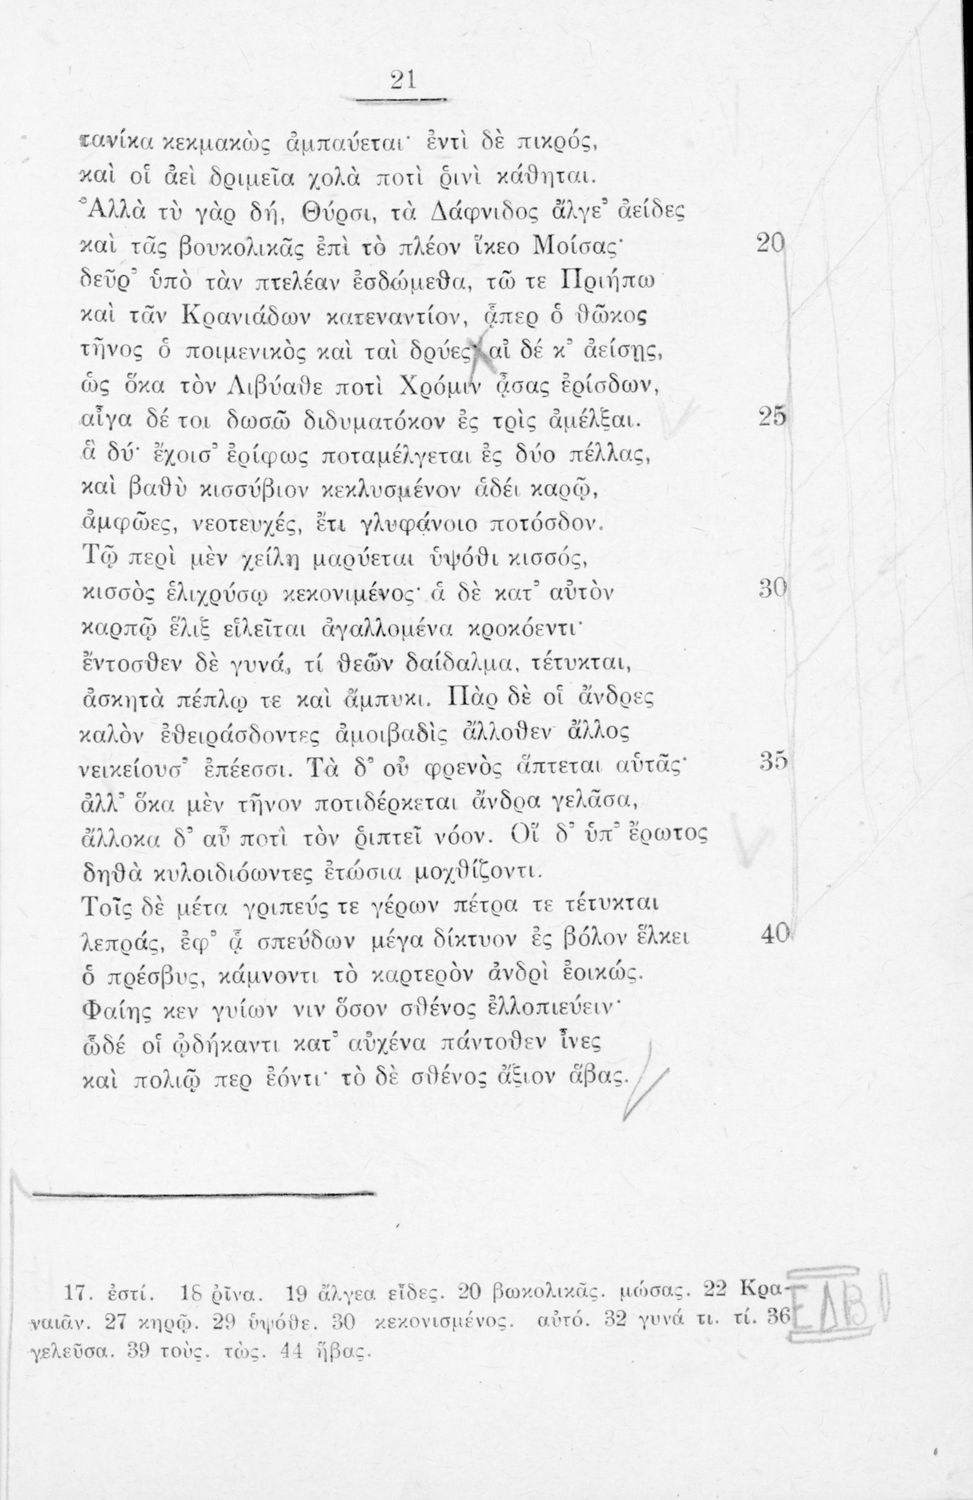 21
τανίκα κεκμακὼς ἀμπαύεται· ἐντὶ δὲ πικρός,
καὶ οἱ ἀεὶ δριμεῖα χολὰ ποτὶ ῥινὶ κάθηται.
Ἀλλὰ τὺ γὰρ δή, Θύρσι, τὰ Δάφνιδος ἄλγε᾽ ἀείδες
καὶ τᾶς βουκολικᾶς ἐπὶ τὸ πλέον ἵκεο Μοίσας·
20
δεῦρ᾽ ὑπὸ τὰν πτελέαν ἑσδώμεθα, τῶ τε Πριήπω
καὶ τᾶν Κρανιάδων κατεναντίον, ᾇπερ ὁ θῶκος
τῆνος ὁ ποιμενικὸς καὶ ταὶ δρύες· αἰ δέ κ᾽ ἀείσῃς,
ὡς ὅκα τὸν Λιβύαθε ποτὶ Χρόμιν ᾇσας ἐρίσδων,
αἶγα δέ τοι δωσῶ διδυματόκον ἐς τρὶς ἀμέλξαι.
25
ἃ δύ· ἔχοισ᾽ ἐρίφως ποταμέλγεται ἐς δύο πέλλας,
καὶ βαθὺ κισσύβιον κεκλυσμένον ἁδέι καρῷ,
ἀμφῶες, νεοτευχές, ἔτι γλυφάνοιο ποτόσδον.
Τῷ περὶ μὲν χείλη μαρύεται ὑψόθι κισσός,
κισσὸς ἑλιχρύσῳ κεκονιμένος· ἁ δὲ κατ᾽ αὐτὸν
30
καρπῷ ἕλιξ εἱλεῖται ἀγαλλομένα κροκόεντι·
ἔντοσθεν δὲ γυνά, τί θεῶν δαίδαλμα, τέτυκται,
ἀσκητὰ πέπλῳ τε καὶ ἄμπυκι. Πὰρ δὲ οἱ ἄνδρες
καλὸν ἐθειράσδοντες ἀμοιβαδὶς ἄλλοθεν ἄλλος
νεικείουσ᾽ ἐπέεσσι. Τὰ δ᾽ οὐ φρενὸς ἅπτεται αὐτᾶς·
35
ἀλλ᾽ ὅκα μὲν τῆνον ποτιδέρκεται ἄνδρα γελᾶσα,
ἄλλοκα δ᾽ αὖ ποτὶ τὸν ῥιπτεῖ νόον. Οἳ δ᾽ ὑπ᾽ ἔρωτος
δηθὰ κυλοιδιόωντες ἐτώσια μοχθίζοντι.
Τοῖς δὲ μέτα γριπεύς τε γέρων πέτρα τε τέτυκται
λεπράς, ἐφ᾽ ᾇ σπεύδων μέγα δίκτυον ἐς βόλον ἕλκει
40
ὁ πρέσβυς, κάμνοντι τὸ καρτερὸν ἀνδρὶ ἐοικώς.
Φαίης κεν γυίων νιν ὅσον σθένος ἐλλοπιεύειν·
ὧδέ οἱ ᾠδήκαντι κατ᾽ αὐχένα πάντοθεν ἶνες
καὶ πολιῷ περ ἐόντι· τὸ δὲ σθένος ἄξιον ἅβας.
17. ἐστί. 18 ῥῖνα. 19 ἄλγεα εἶδες. 20 βωκολικᾶς. μώσας. 22 Κρα-
ναιᾶν. 27 κηρῷ. 29 ὑψόθε. 30 κεκονισμένος. αὐτό. 32 γυνά τι. τί. 36
γελεῦσα. 39 τοὺς. τὼς. 44 ἥβας.
ΕΔΒ